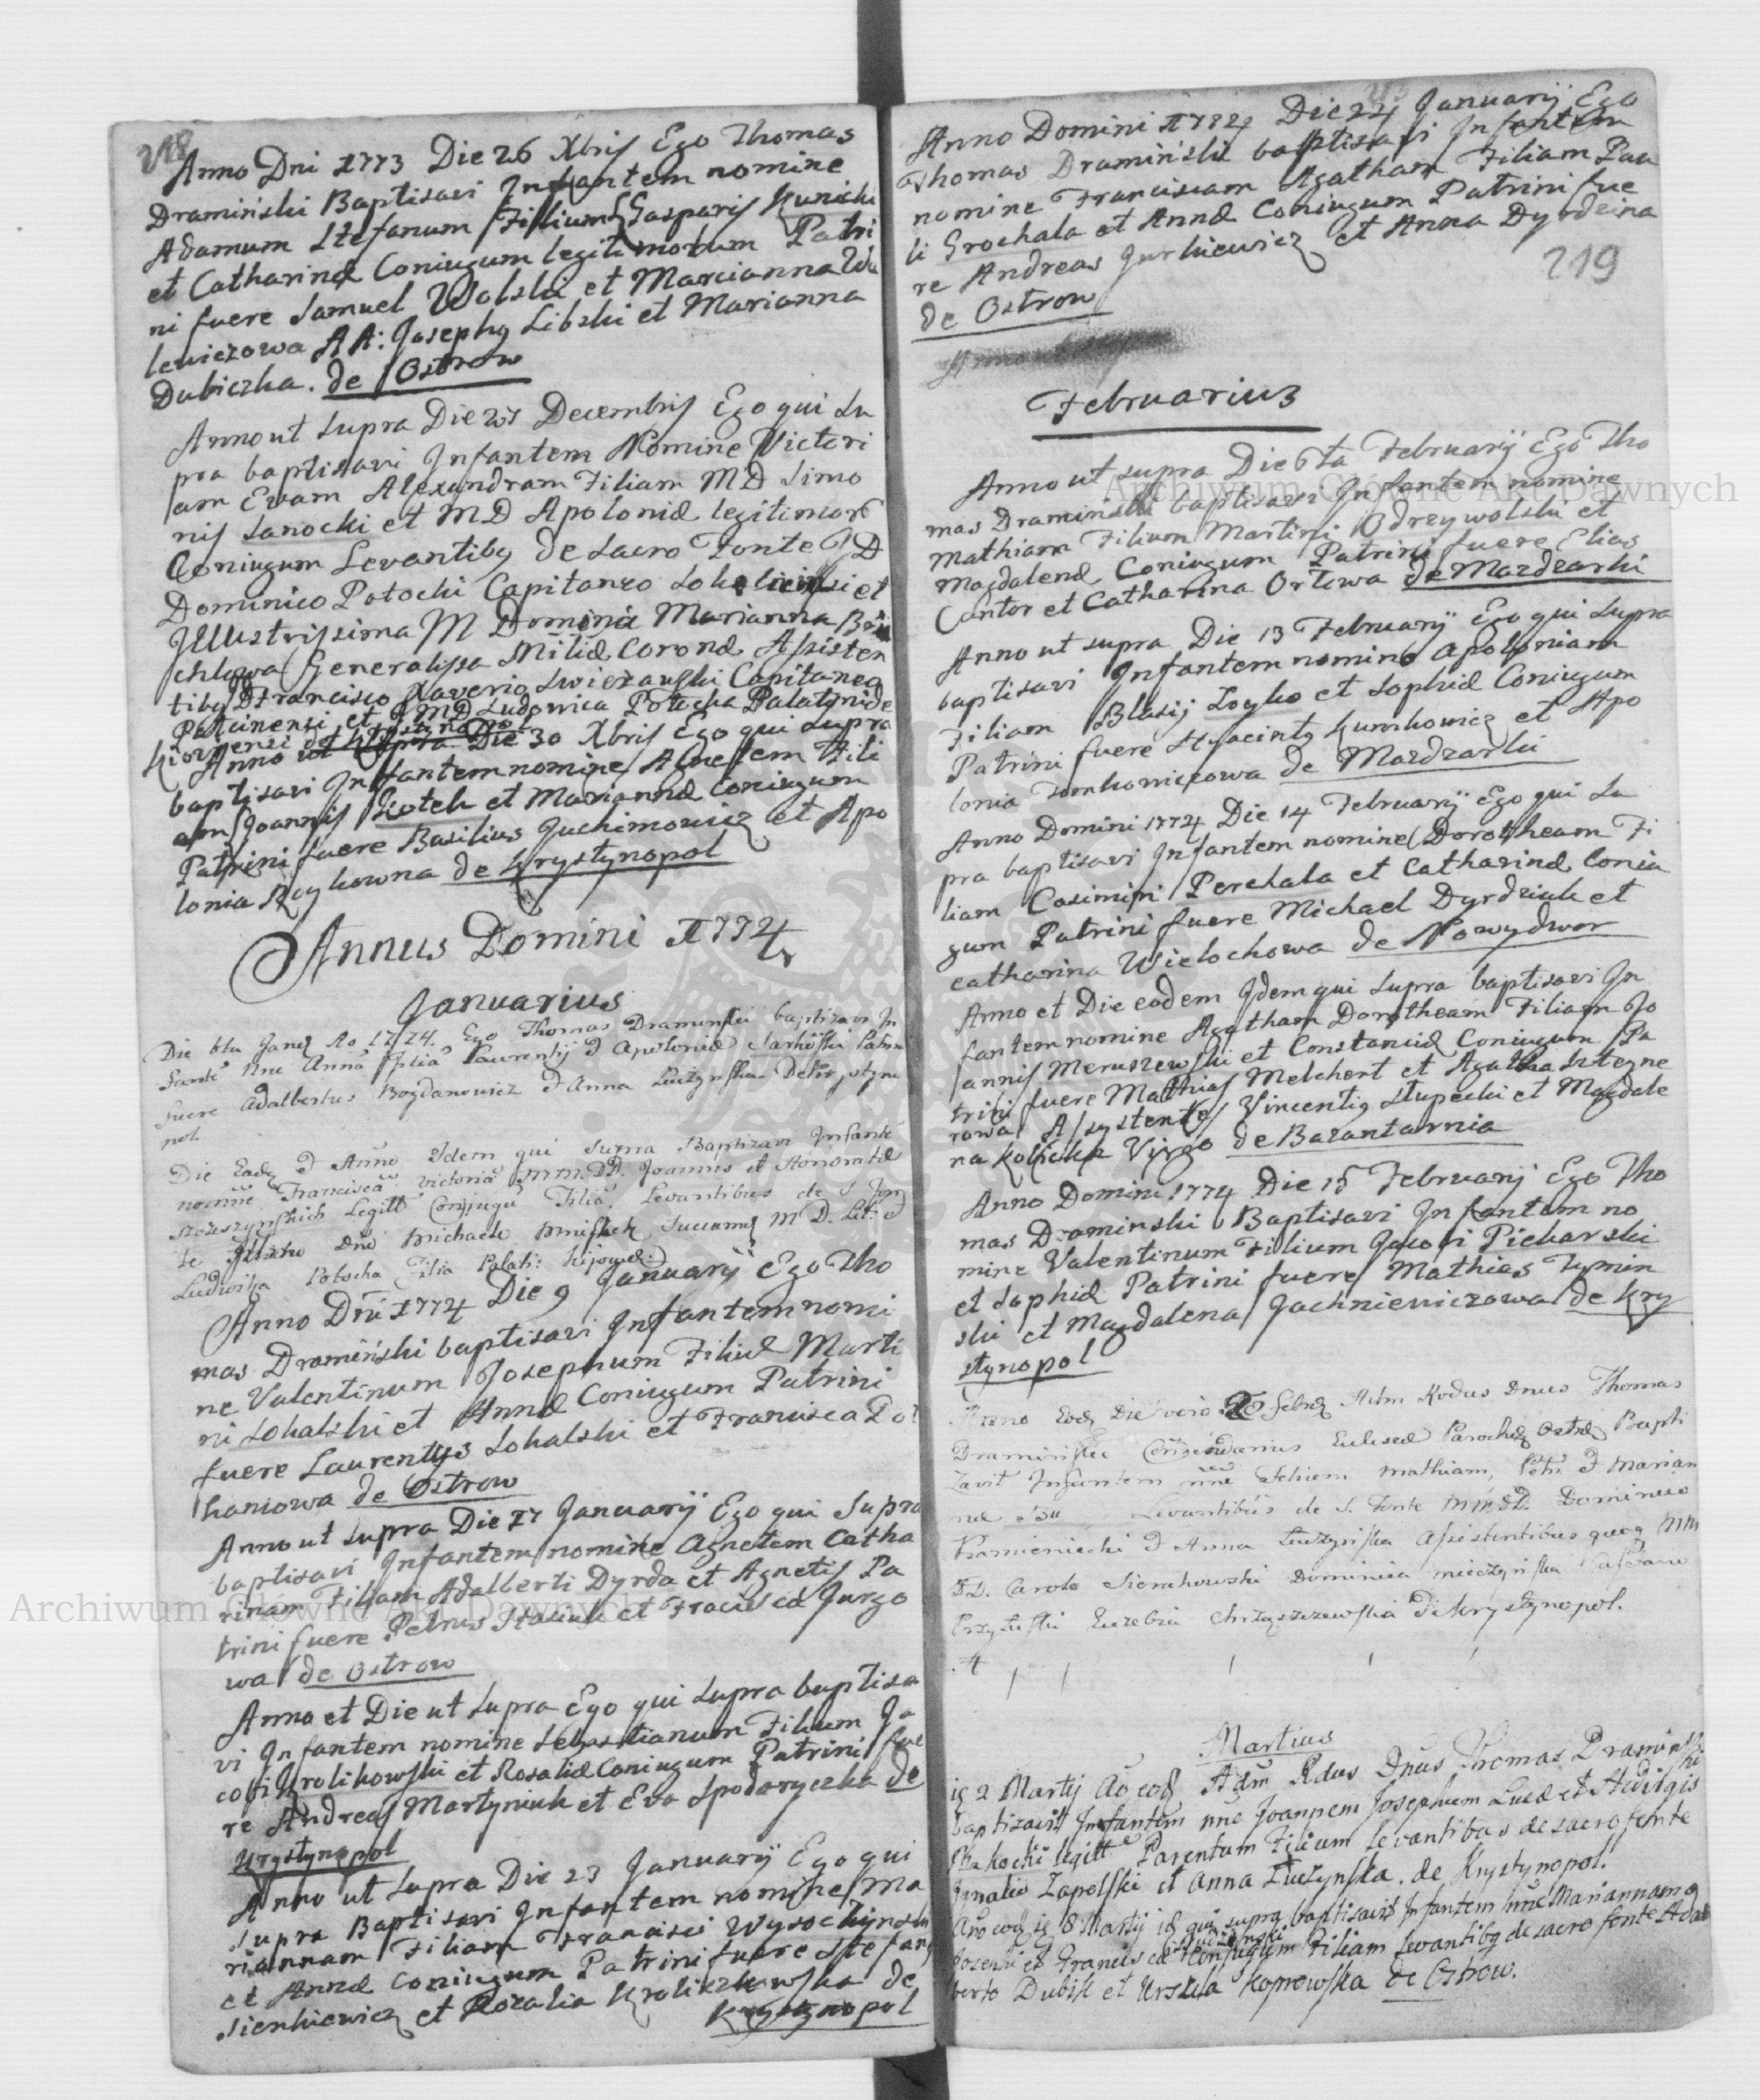 218
Anno Dni 1773 Die 26 Xbris Ego Thomas
Dramiński Baptisavi Infantem nomine
Adamum Stefanum Filium Gasparis Kunicki
et Catharinæ Coniugum legitimorum Patri
ni fuere Samuel Wolski et Marcianna Wa
lewiczowa AA: Josephg Libski et Marianna
Dubiczka. de Ostrow
Anno ut Supra Die 27 Decembris Ego qui Su
pra baptisavi Infantem Nomine Victori
am Evam Alexandram Filiam MD Simo
nis Sanocki et MD Apoloniæ legitimor
Coniugum Levantibg de Sacro Fonte JD
Dominico Potocki Capitaneo
Illustrissima M Domina Marianna
Generalissa Militiæ Coronæ Assisten
tibg D Francisco Xaverio Swiezawski Capitaneo
et MD Ludovica Potocka Palatinide
Kiov
Anno ut Supra Die 30 Xbris Ego qui Supra
baptisavi Infantem nomine Agnetem Fili
am Joannis Kotek et Mariannæ Coniugum
Patrini fuere Basilius Juchimowicz et Apo
lonia Reykowna de Krystynopol
Annus Domini 1774
Januarius
Die 6ta Janrz Ao 1774. Ego Thomas Draminski baptizavi In
fante nne Anna Filia Laurentij & Apoloniæ Sarkoski Patrini
fuere Adalbertus Bogdanowicz & Anna Luczynska De Krystyno
pol.
Die Eadz & Anno Idem qui Supra Baptizavi Infante
nomine Francisca Victoria MM.DD. Joannis et Honoratæ
Legitt Conjugu Filia Levantibus de S Fon
te Dno Michaele Mniszek M D. Lit: &
Ludwika Potocka Filia Palati: Kijowie:
Anno Dni 1774 Die 9 Januarÿ Ego Tho
mas Dramiński baptisavi Infantem nomi
ne Valentinum Josephum Filiu Marti
ni Sokalski et Annæ Coniugum Patrini
fuere Laurentys Sokalski et Francisca Pot
haniowa de Ostrow
Anno ut Supra Die 17 Januarÿ Ego qui Supra
baptisavi Infantem nomine Agnetem Catha
rinam Filiam Adalberti Dyrda et Agnetis Pa
trini fuere Petrus Stasiuk et Franciscæ Jurgo
wa de Ostrow
Anno et Die ut Supra Ego qui Supra baptisa
vi Infantem nomine Sebastianum Filium Ja
cobi Krolikowski et Rosaliæ Coniugum Patrini fue
re Andreas Martyniuk et Eva Spodaryczka de
Krystynopol
Anno ut Supra Die 23 Januarÿ Ego qui
Supra Baptisavi Infantem nomine Ma
riannam Filiam Francisci Wysoczynski
et Annæ Coniugum Patrini fuere Stefang
Sienkiewicz et Rozalia Krolikowska de
Krystynopol
Anno Domini 1774 Die 24 Januarÿ Ego
Thomas Dramiński baptisavi Infantem
nomine Franciscam Agatham Filiam Pau
li Grochala et Annæ Coniugum Patrini fue
re Andreas Jurkiewicz et Anna Dyrdzina
de Ostrow
219
Anno
Februarius
Anno ut supra Die 6ta Februarÿ Ego Tho
mas Dramiński baptisavi Infantem nomine
Mathiam Filium Martini Odrzywolski et
Magdalenæ Coniugum Patrini fuere Elias
Cantor et Catharina Orlowa de Mozdzarki
Anno ut supra Die 13 Februarÿ Ego qui Supra
baptisavi Infantem nomine Apoloniam
Filiam Blasij Zoyko et Sophiæ Coniugum
Patrini fuere Hyacintg Kumkowicz et Apo
lonia Tomkowiczowa de Mozdzarki
Anno Domini 1774 Die 14 Februarÿ Ego qui Su
pra baptisavi Infantem nomine Dorotheam Fi
liam Casimiri Perchala et Catharinæ Coniu
gum Patrini fuere Michael Dyrdziuk et
Catharina Wielochowa de Nowydwor
Anno et Die eodem Idem qui Supra baptisavi In
fantem nomine Agatham Dorotheam Filiam Jo
annis Meruszewski et Constanciæ Coniugum Pa
trini fuere Mathias Melchert et Agatha Sztezne
rowa Assystentes Vincentig Stupecki et Magdale
na Virgo de Bazantarnia
Anno Domini 1774 Die 15 Februarÿ Ego Tho
mas Dramiński Baptisavi Infantem no
mine Valentinum Filium Jacobi Piekarski
et Sophiæ Patrini fuere Mathias Tymin
ski et Magdalena Jachniewiczowa de Kry
stynopol
Anno Eodz Die vero 20 Febrz Adm Rndus Dnus Thomas
Draminski Comendarius Ecclesiæ Parochz Ostrz Bapti
zavit Infantem nne Mathiam, Petri & Marian
næ Levantibus de S. Fonte MMDD. Dominico
Kamieniecki & Anna Luczynska Assistentibus quoq MM
DD. Carolo Sienkowski Dominica Mieczynska
Euzebia Chrząszczewska De Krystynopol.
Martius
ie 2 Martij Ao eodz Adm Rdus Dnus Thomas Draminski
baptizavit Infantem nne Joannem Josephum Lucæ et Hedvigis
legitt Parentum Filium levantibus de sacro fonte
Ignatio Zapolski et Anna Luczynska. de Krystynopol.
Ao eodz ie 8 Martij id qui supra baptisavit Infantem nne Mariannam
Josephi et Franciscæ Conjugum Filiam levantibg de sacro fonte Adal
berto Dubik et Urszula Koprowska de Ostrow.